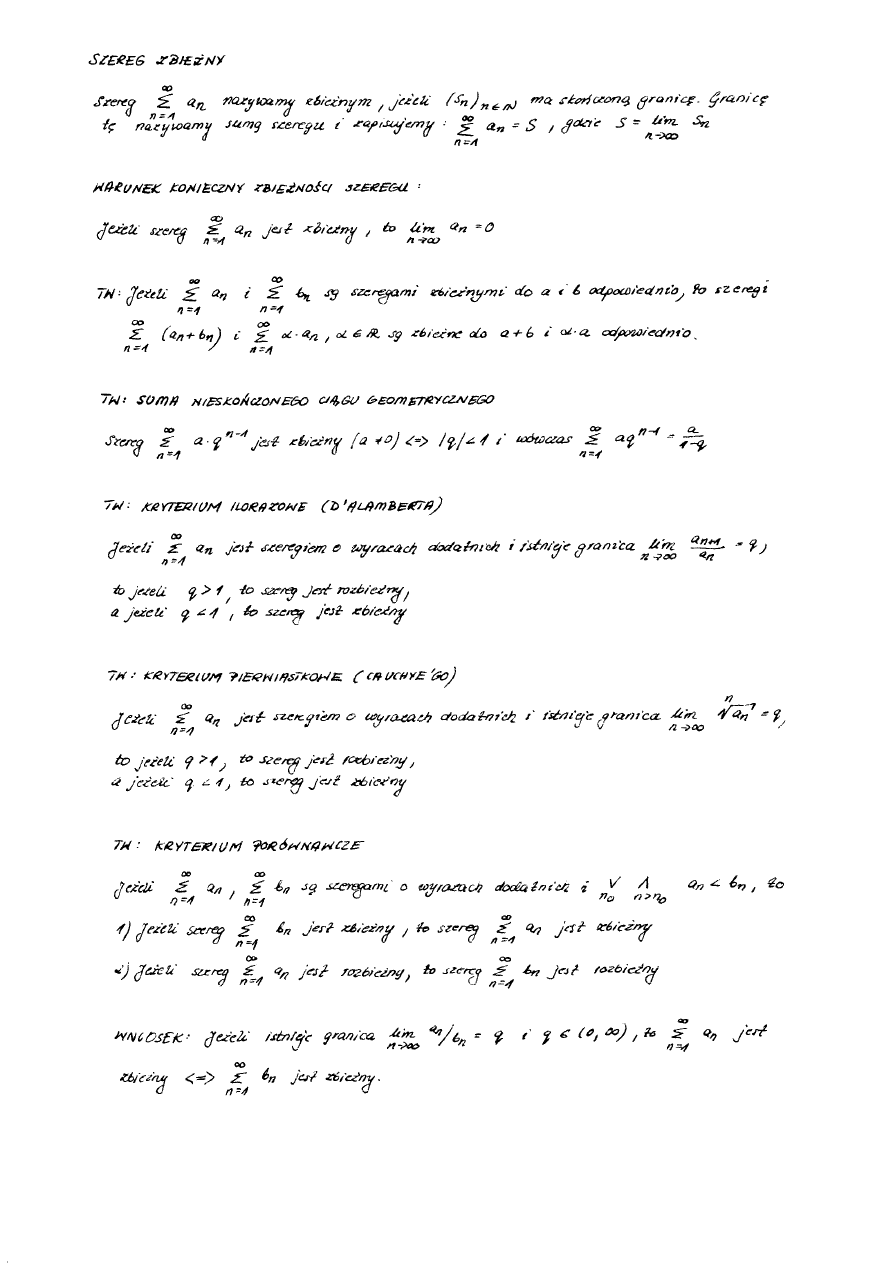 SZEREG ZBIEŻNY
Szereg ∞∑n=1 an nazywamy zbieżnym, jeżeli (Sn)n∈ℕ ma skończoną granicę. Granicę
tę nazywamy sumą szeregu i zapisujemy: ∞∑n=1 an = S, gdzie S = lim n→∞ Sn
WARUNEK KONIECZNY ZBIEŻNOŚCI SZEREGU:
Jeżeli szereg ∞∑n=1 an jest zbieżny, to lim n→∞ an = 0
TW: Jeżeli ∞∑n=1 an i ∞∑n=1 bn są szeregami zbieżnymi do a i b odpowiednio, to szeregi
∞∑n=1 (an+bn) i ∞∑n=1 α·an, α∈ℝ są zbieżne do a+b i α·a odpowiednio.
TW: SUMA NIESKOŃCZONEGO CIĄGU GEOMETRYCZNEGO
Szereg ∞∑n=1 a·q^n-1 jest zbieżny (a≠0) <=> |q|<1 i wówczas ∞∑n=1 aq^n-1 = a/1-q
TW: KRYTERIUM ILORAZOWE (D'ALAMBERTA)
Jeżeli ∞∑n=1 an jest szeregiem o wyrazach dodatnich i istnieje granica lim n→∞ an+1/an = q,
to jeżeli q>1, to szereg jest rozbieżny,
a jeżeli q<1, to szereg jest zbieżny
TW: KRYTERIUM PIERWIASTKOWE (CAUCHYE'GO)
Jeżeli ∞∑n=1 an jest szeregiem o wyrazach dodatnich i istnieje granica lim n→∞ n√an = q,
to jeżeli q>1, to szereg jest rozbieżny,
a jeżeli q<1, to szereg jest zbieżny
TW: KRYTERIUM PORÓWNAWCZE
Jeżeli ∞∑n=1 an, ∞∑n=1 bn są szeregami o wyrazach dodatnich i ∨n0 ∧n>n0 an < bn, to
1) Jeżeli szereg ∞∑n=1 bn jest zbieżny, to szereg ∞∑n=1 an jest zbieżny
2) Jeżeli szereg ∞∑n=1 an jest rozbieżny, to szereg ∞∑n=1 bn jest rozbieżny
WNIOSEK: Jeżeli istnieje granica lim n→∞ an/bn = q i q∈(0,∞), to ∞∑n=1 an jest
zbieżny <=> ∞∑n=1 bn jest zbieżny.